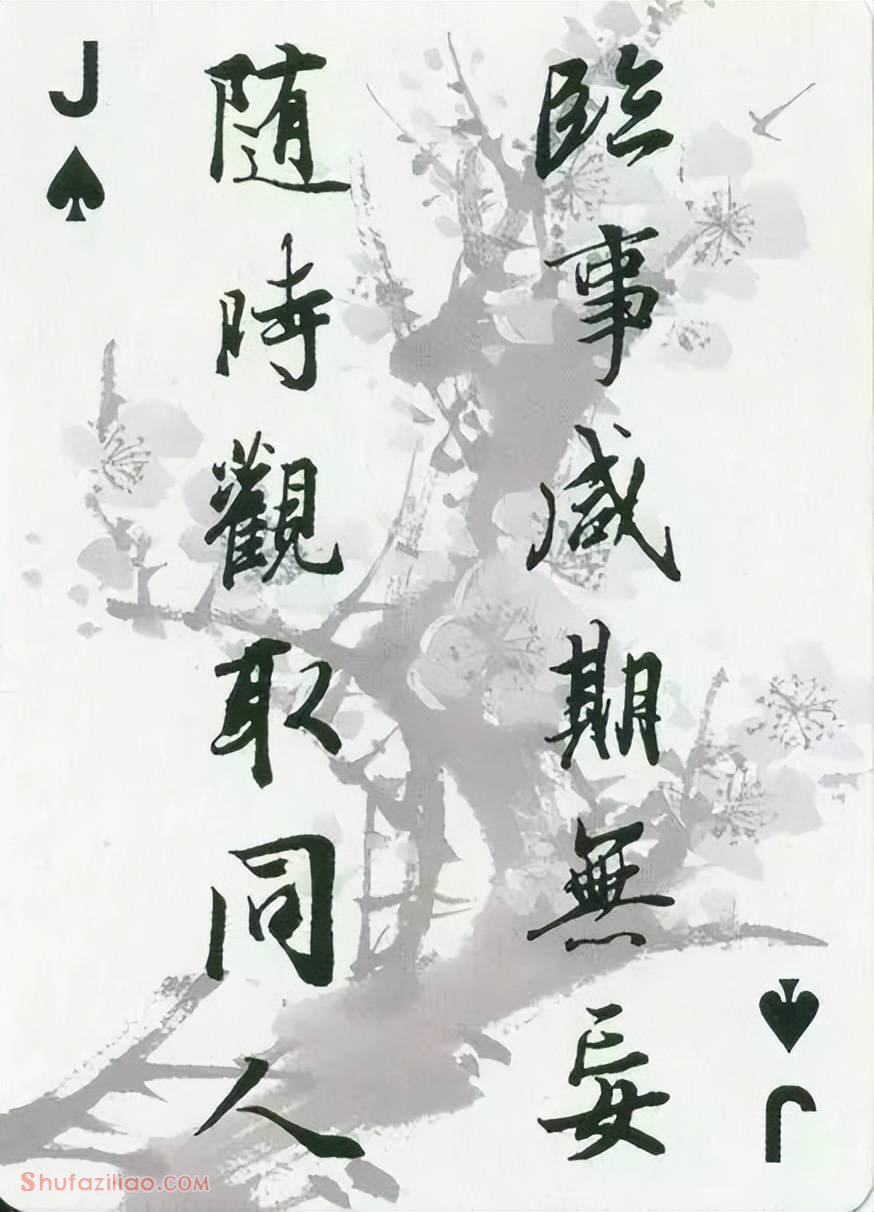 J
臨事咸期無妄
随時觀取同人
J
Shufaziliao.COM